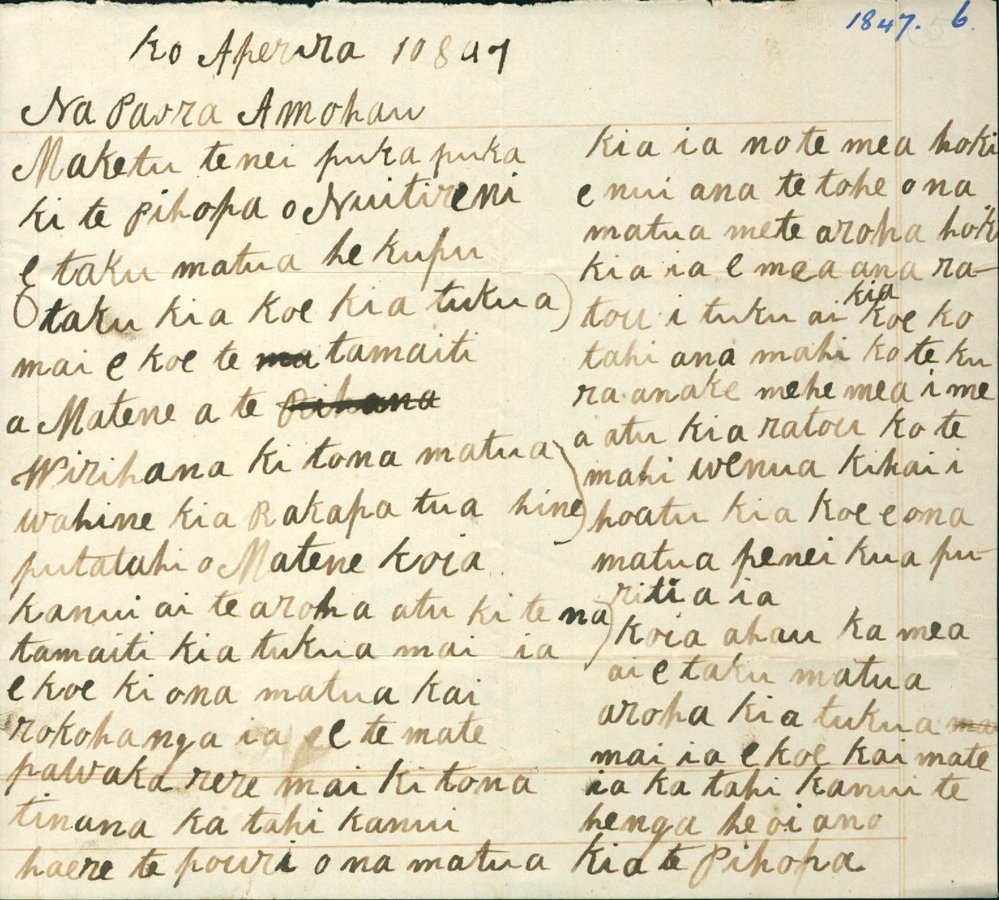 1847. 6.
Ko Aperira 10 847
Na Paora Amohau
Maketu tenei puka puka
ki te Pihopa o Nuitireni
e taku matua he kupu
taku kia koe kia tukua
mai e koe te ma tamaiti
a Matene a te Rihana
Wirihana ki tona matua
wahine kia Rakapa tua hine
putatahi o Matene koia
kanui ai te aroha atu ki te na
tamaiti kia tukua mai ia
e koe ki ona matua kai
rokohanga ia e te mate
pawaka rere mai ki tona
tinana ka tahi kanui
haere te pouri o na matua
kia ia no te mea hoki
e nui ana te tohe o na
matua me te aroha hoki
kia ia e mea ana ra-
tou i tuku ai kia koe ko
tahi ana mahi ko te ku
ra anake mehe mea i me
a atu kia ratou ko te
mahi wenua kihai i
hoatu kia koe e ona
matua penei kua pu-
ritia ia
koia ahau ka mea
ai e taku matua
aroha kia tukua ma
mai ia e koe kai mate
ia ka tahi kanui te
henga heoi ano
kia te Pihopa